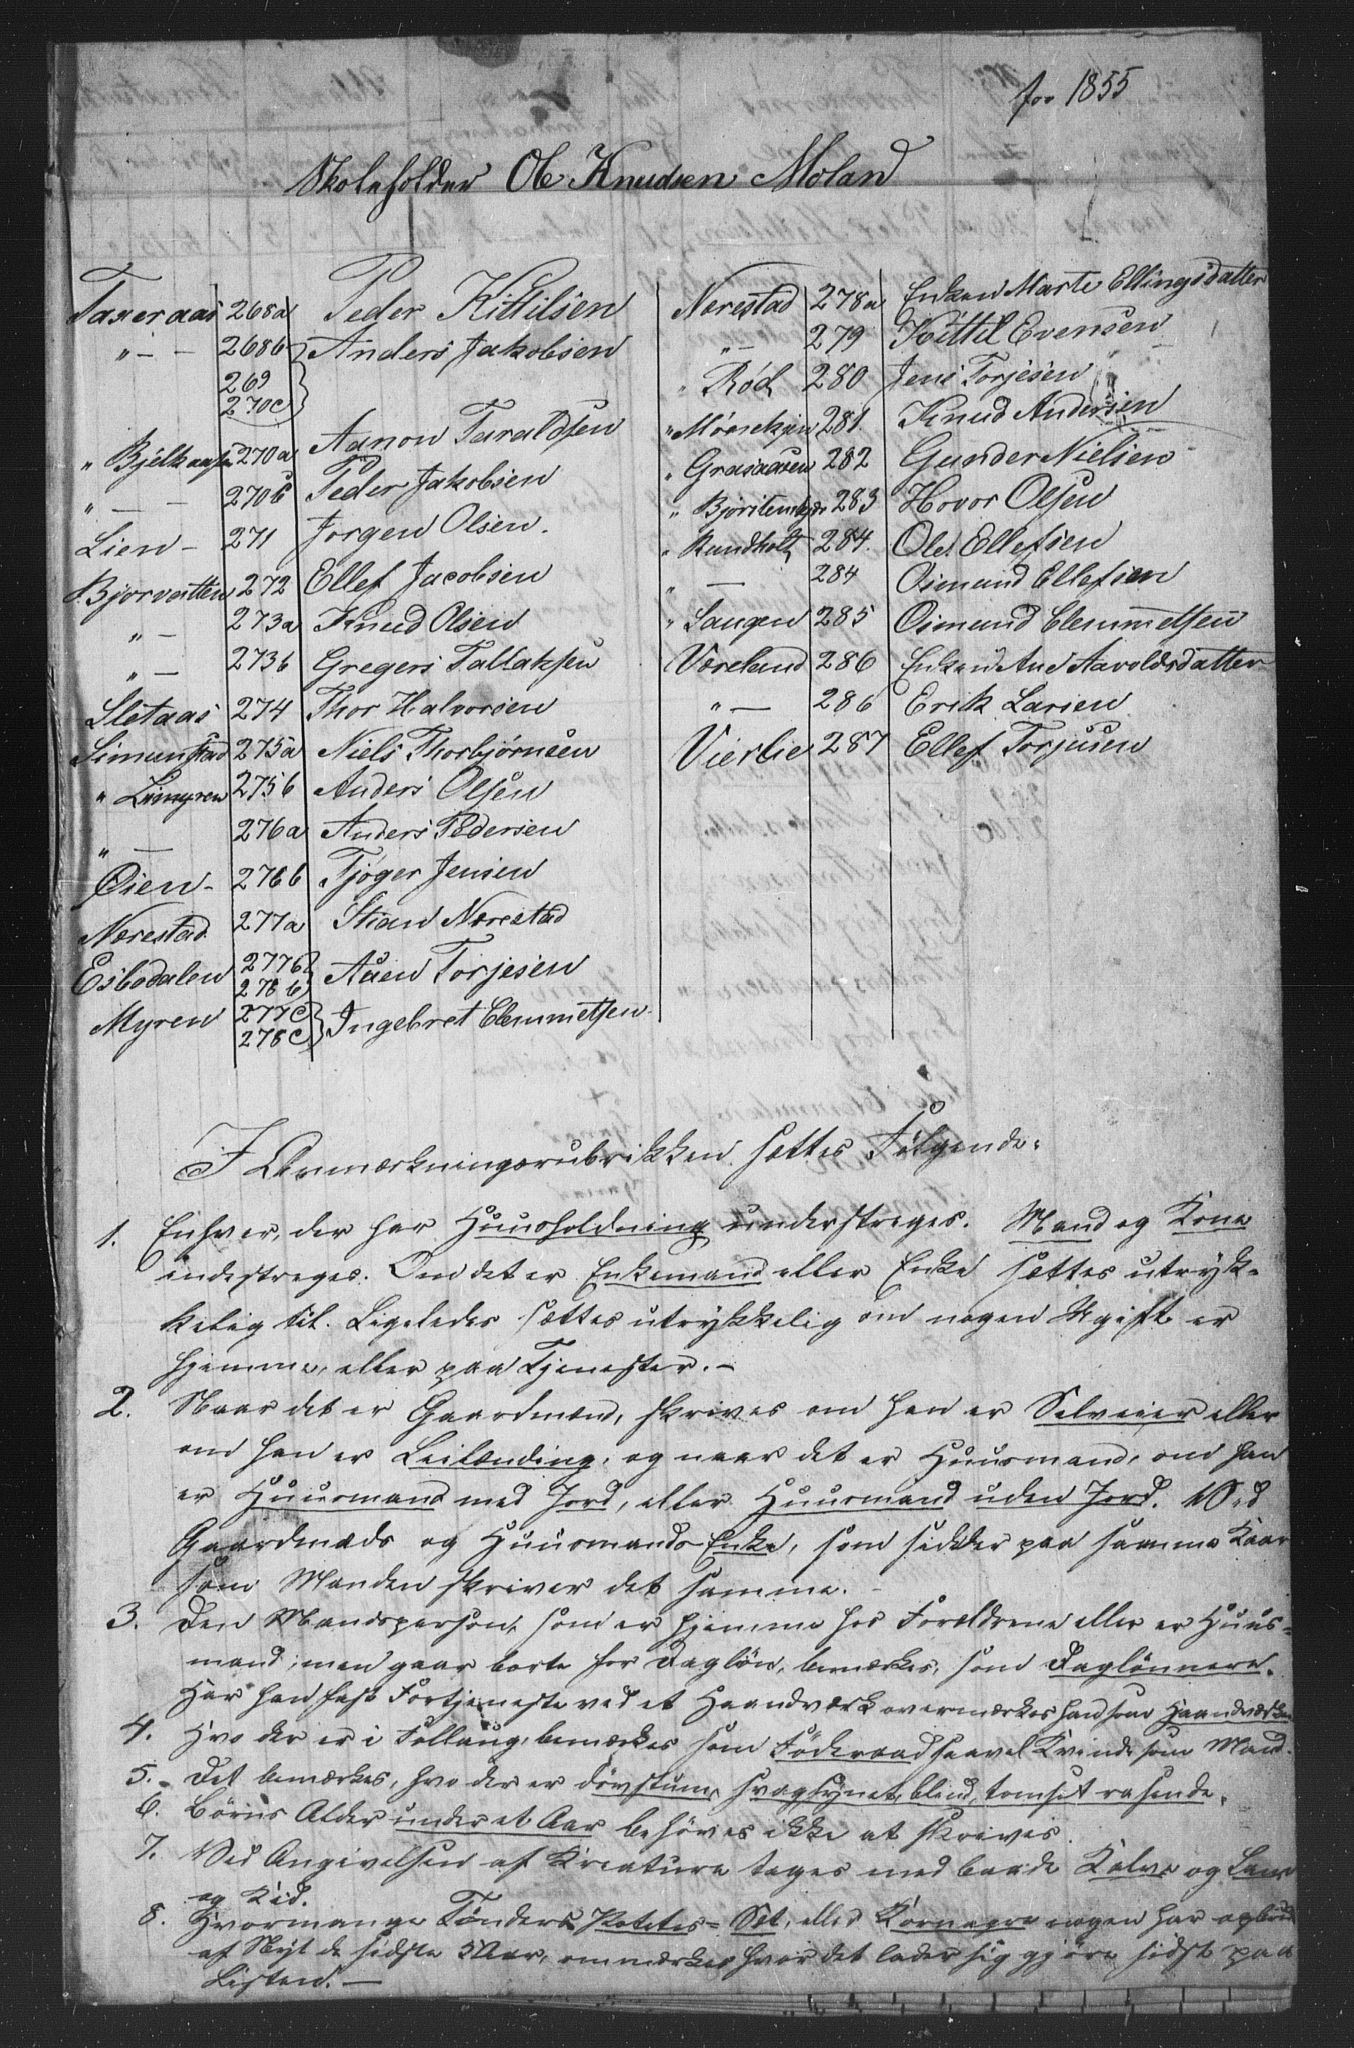 for 1855
Skoleholder Ole Knudsen Moland
Taxeraas 268a Peder Kittilsen
" — — 268b Anders Jakobsen
269
270c
" Bjelkaasen 270a Aanon Taraldsen
" — 270b Peder Jakobsen
Lien — 271 Jorgen Olsen.
Bjorvatten 272 Ellef Jacobsen
" — 273a Knud Olsen
" — 273b Gregers Tallaksen
Sletaas 274 Thor Halvorsen
Simunstad 275a Niels Thorbjørnsen
" Limyren 275b Anders Olsen
" — 276a Anders Pedersen
Øien — 276b Tjøger Jensen
Nærestad 277a Stian Nærestad
Esbodalen 277b Aaen Torjesen
278b
Myren 277c Ingebret Clemmetsen
278c
Nærestad 278a Enken Marte Ellingsdatter
" — 279 Kittil Evensen
" Rød 280 Jens Torjesen
" Mørsekjen 281 Knud Andersen
" Grasaasen 282 Gunder Nielsen
" 283 Hovor Olsen
" Rundholt 284. Ole Ellefsen
" — 284 Osmund Ellefsen
" Saugen 285 Osmund Clemmetsen
Væreland 286 Enken Ane Aavoldsdatter
" — 286 Erik Larsen
Vierlie 287 Ellef Torjusen
I Anmærkningsrubrikken sættes Følgende.
1. Enhver, der har Huusholdning understreges. Mand og Kone
indestreges. Om det er Enkemand eller Enke sættes utryk-
kelig til. Ligeledes sættes utrykkelig om nogen Ugift er
hjemme, eller paa Tjenester. —
2. Naar det er Gaardmænd, skrives om han er Selveier eller
om han er Leilænding, og naar det er Huusmand, om han
er Huusmand med Jord, eller Huusmand uden Jord. Ved
Gaardmæds og Huusmands Enke, som sidder paa samme Kaar
som Manden skriver det samme. —
3. Den Mandsperson, som er hjemme hos Forældrene eller er Huus-
mand, men gaar borte for Dagløn, bemærkes, som Daglønnere.
Har han fast Fortjeneste ved et Haandværk overmærkes han som Haandværker
4. Hvo der er i Follaug, bemærkes som Føderaad saavel Kvinde som Mand.
5. Det bemærkes, hvo der er døvstum, svagsynet, blind, tomset rasende.
6. Børns Alder under et Aar behøves ikke at skrives.
7. Ved Angivelsen af Kreature tages med baade Kalve og Lam
og Kid.
8. Hvormange Tønders Potetes- Sæt, eller Kornagre nogen har opbrudt
af Nyt de sidste 5 Aar, anmærkes hvor det lader sig gjøre sidst paa
Listen. —